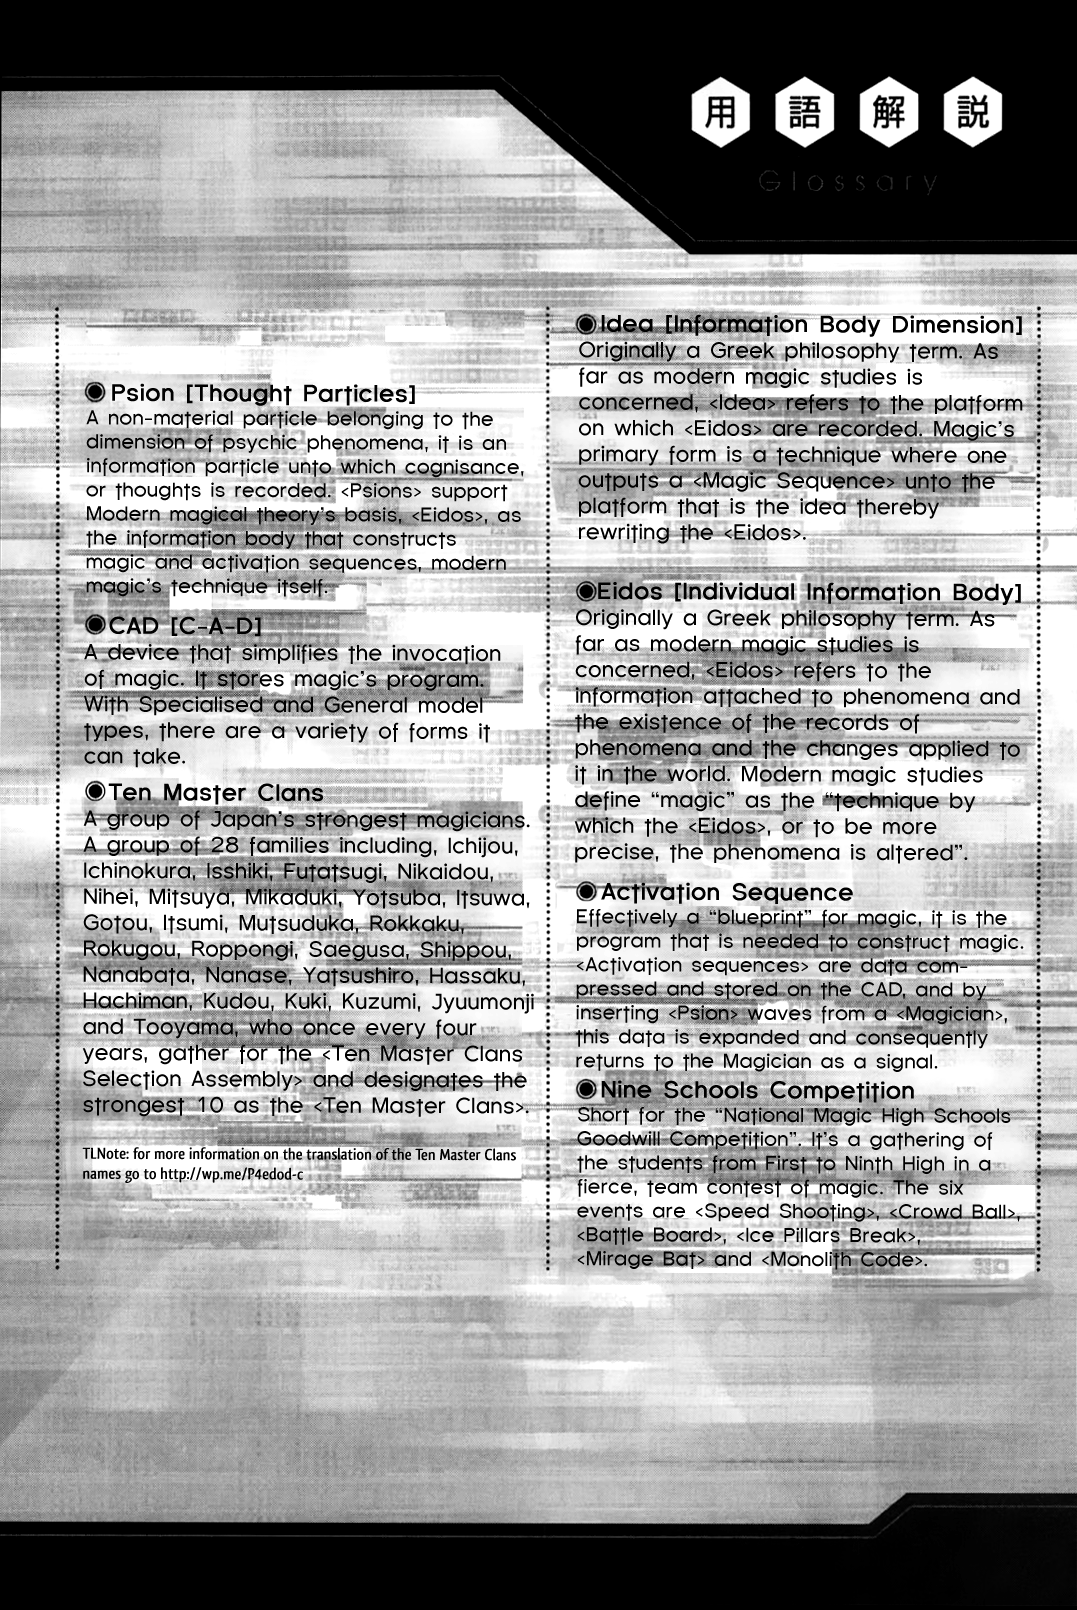 用語解説
Glossary
◉ Psion [Thought Particles]
A non-material particle belonging to the
dimension of psychic phenomena, it is an
information particle unto which cognisance,
or thoughts is recorded. <Psions> support
Modern magical theory's basis, <Eidos>, as
the information body that constructs
magic and activation sequences, modern
magic's technique itself.
◉CAD [C-A-D]
A device that simplifies the invocation
of magic. It stores magic's program.
With Specialised and General model
types, there are a variety of forms it
can take.
◉Ten Master Clans
A group of Japan's strongest magicians.
A group of 28 families including, Ichijou,
Ichinokura, Isshiki, Futatsugi, Nikaidou,
Nihei, Mitsuya, Mikaduki, Yotsuba, Itsuwa,
Gotou, Itsumi, Mutsuduka, Rokkaku,
Rokugou, Roppongi, Saegusa, Shippou,
Nanabata, Nanase, Yatsushiro, Hassaku,
Hachiman, Kudou, Kuki, Kuzumi, Jyuumonji
and Tooyama, who once every four
years, gather for the <Ten Master Clans
Selection Assembly> and designates the
strongest 10 as the <Ten Master Clans>.
TLNote: for more information on the translation of the Ten Master Clans
names go to http://wp.me/P4edod-c
◉Idea [Information Body Dimension]
Originally a Greek philosophy term. As
far as modern magic studies is
concerned, <Idea> refers to the platform
on which <Eidos> are recorded. Magic's
primary form is a technique where one
outputs a <Magic Sequence> unto the
platform that is the idea thereby
rewriting the <Eidos>.
◉Eidos [Individual Information Body]
Originally a Greek philosophy term. As
far as modern magic studies is
concerned, <Eidos> refers to the
information attached to phenomena and
the existence of the records of
phenomena and the changes applied to
it in the world. Modern magic studies
define “magic” as the “technique by
which the <Eidos>, or to be more
precise, the phenomena is altered”.
◉Activation Sequence
Effectively a “blueprint” for magic, it is the
program that is needed to construct magic.
<Activation sequences> are data com-
pressed and stored on the CAD, and by
inserting <Psion> waves from a <Magician>,
this data is expanded and consequently
returns to the Magician as a signal.
◉Nine Schools Competition
Short for the “National Magic High Schools
Goodwill Competition”. It's a gathering of
the students from First to Ninth High in a
fierce, team contest of magic. The six
events are <Speed Shooting>, <Crowd Ball>,
<Battle Board>, <Ice Pillars Break>,
<Mirage Bat> and <Monolith Code>.